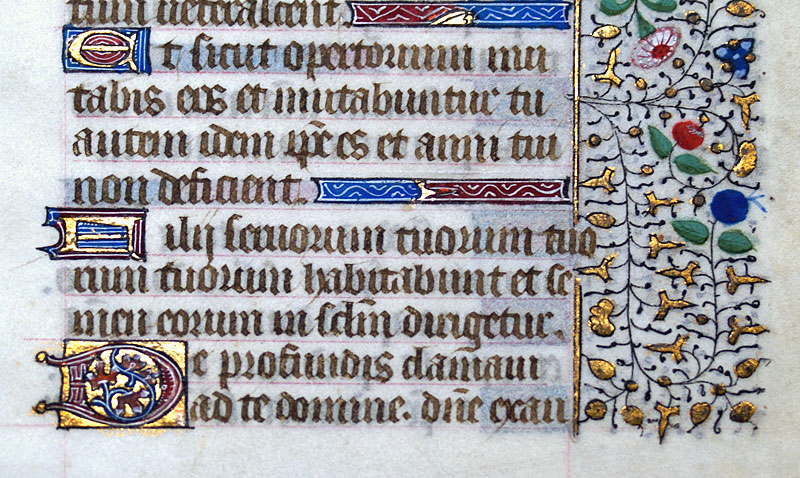 tum ueterascent.
Et sicut opertorium mu
tabis eos et mutabuntur tu
autem idem ip̄e es et anni tui
non deficient.
Filij seruorum tuorum tuo
rum tuorum habitabunt et se
men eorum in sclm̄ dirigetur.
De profundis clamaui
ad te domine. dn̄e exau